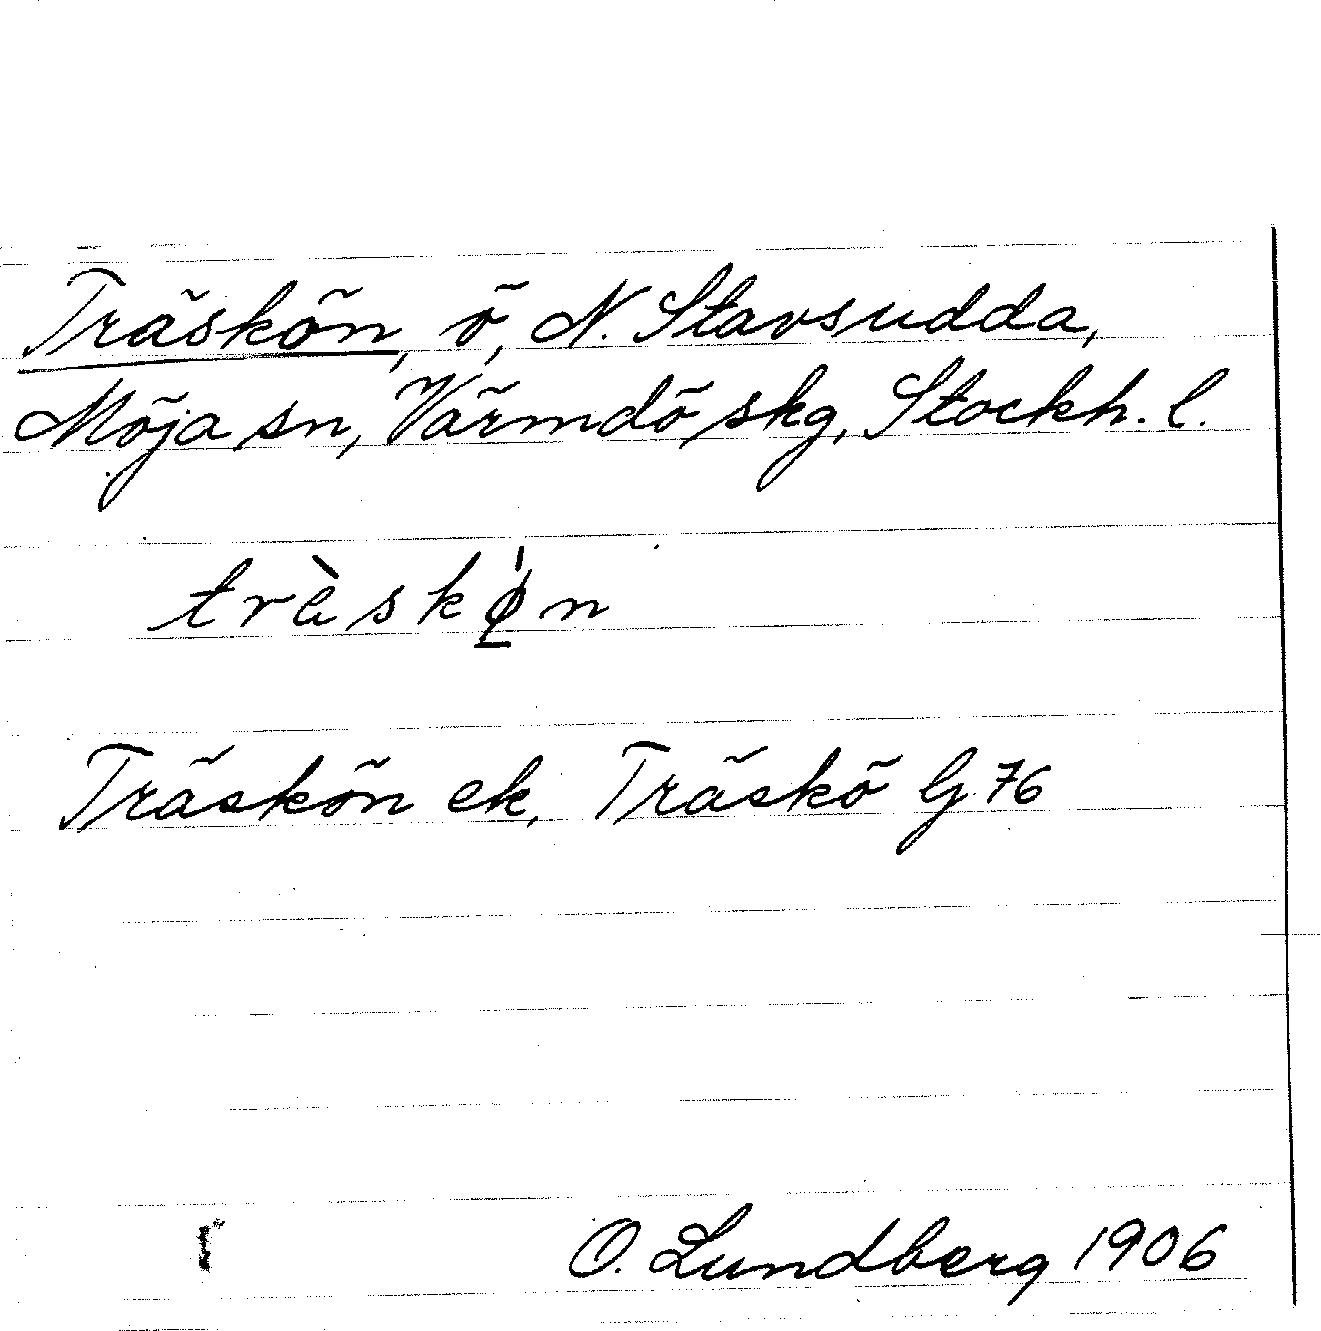 Träskön, ö, N. Stavsudda,
Möja sn, Värmdö skg, Stockh. l.
trèskǿ̱n
Träskön ek, Träskö G 76
O. Lundberg 1906